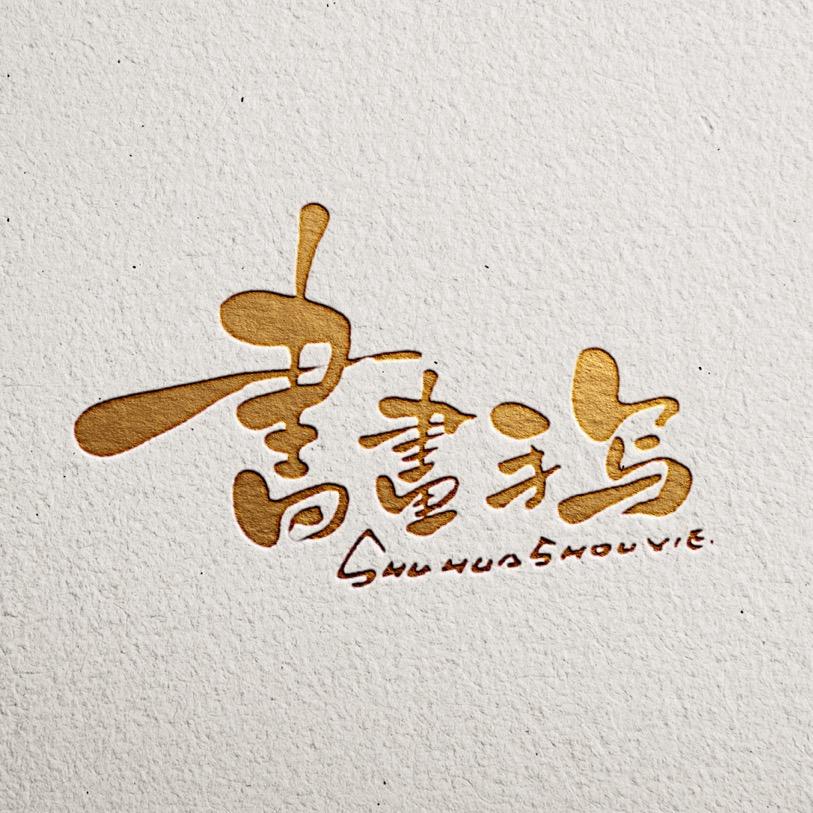 書畫手写
SHUHUASHOUXIE.